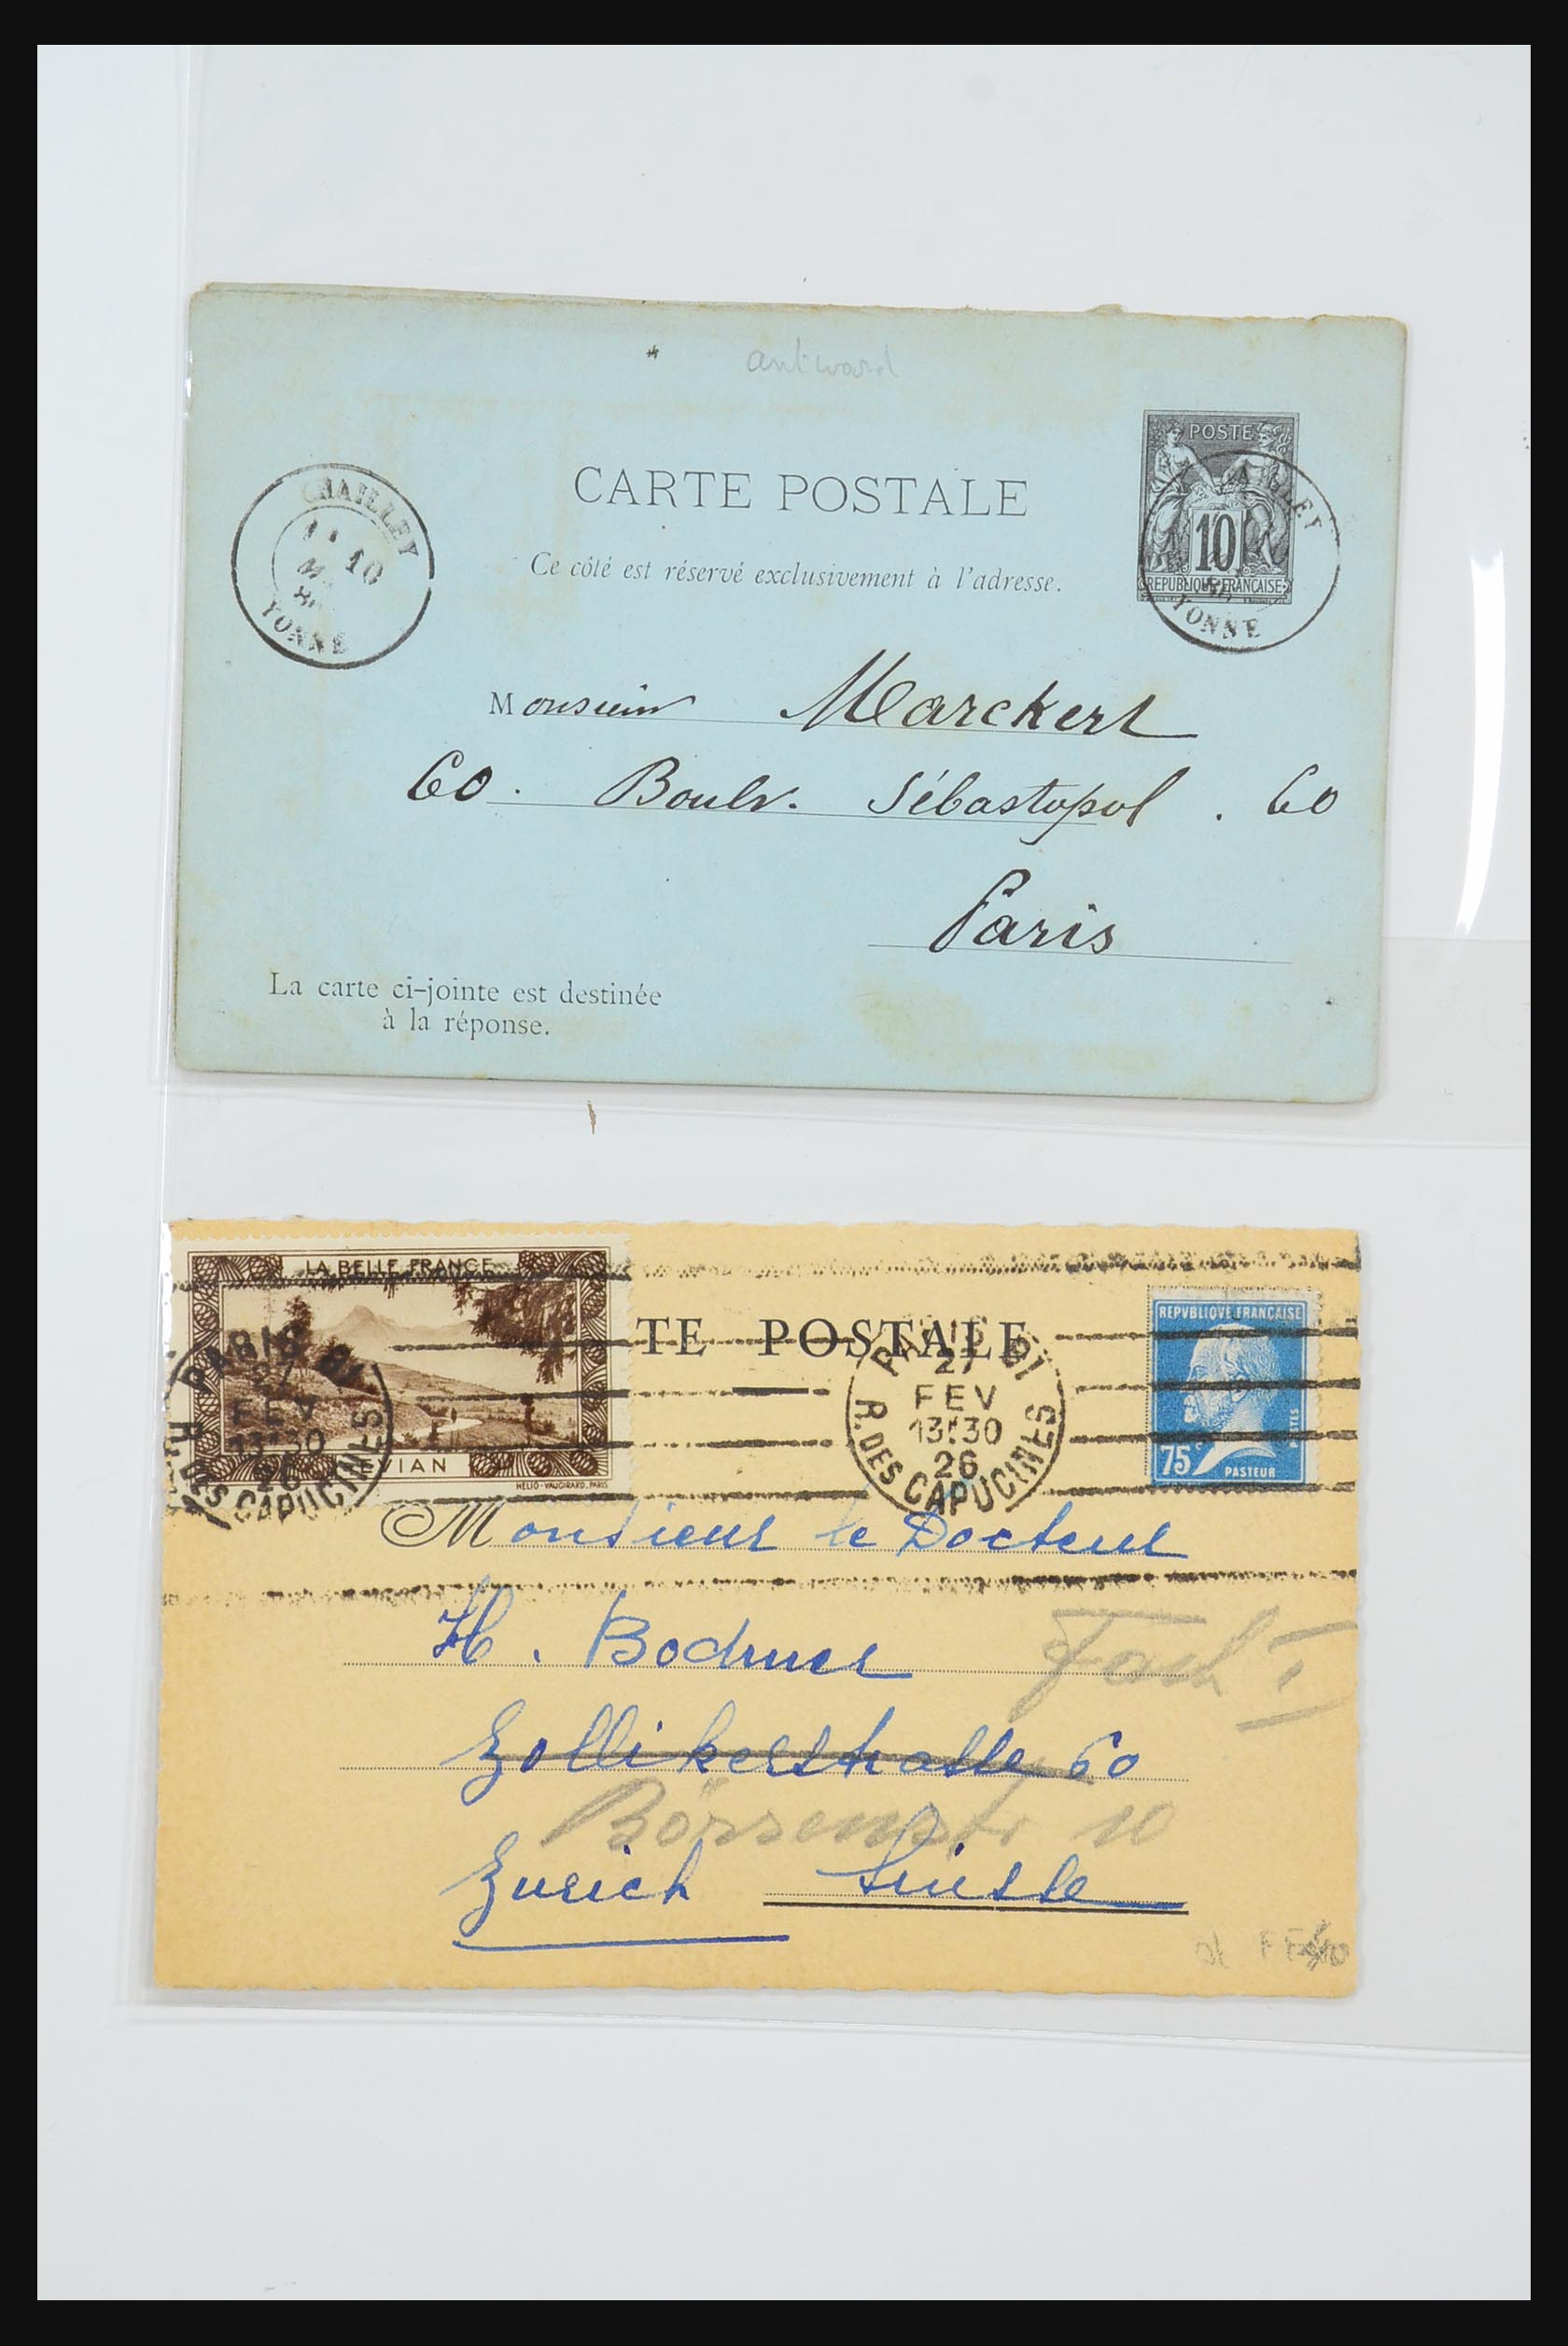 CARTE POSTALE
POSTE
10
REPUBLIQUE FRANCAISE
Ce côté est réservé exclusivement à l'adresse.
CHAILLEY
10
YONNE
YONNE
Monsieur Marckert
60. Boulv. Sébastopol. 60
Paris
La carte ci-jointe est destinée
à la réponse.
LA BELLE FRANCE
EVIAN
HELIO-VAUGIRARD, PARIS
TE POSTALE
PARIS
27
FEV
13:30
26
R. DES CAPUCINES
27
FEV
13:30
26
R. DES CAPUCINES
REPVBLIQVE FRANCAISE
POSTES
75c
PASTEUR
Monsieur le Docteur
H. Bodmer
Fach I
Zollikerstrasse 60
Börsenstr 10
Zurich Suisse